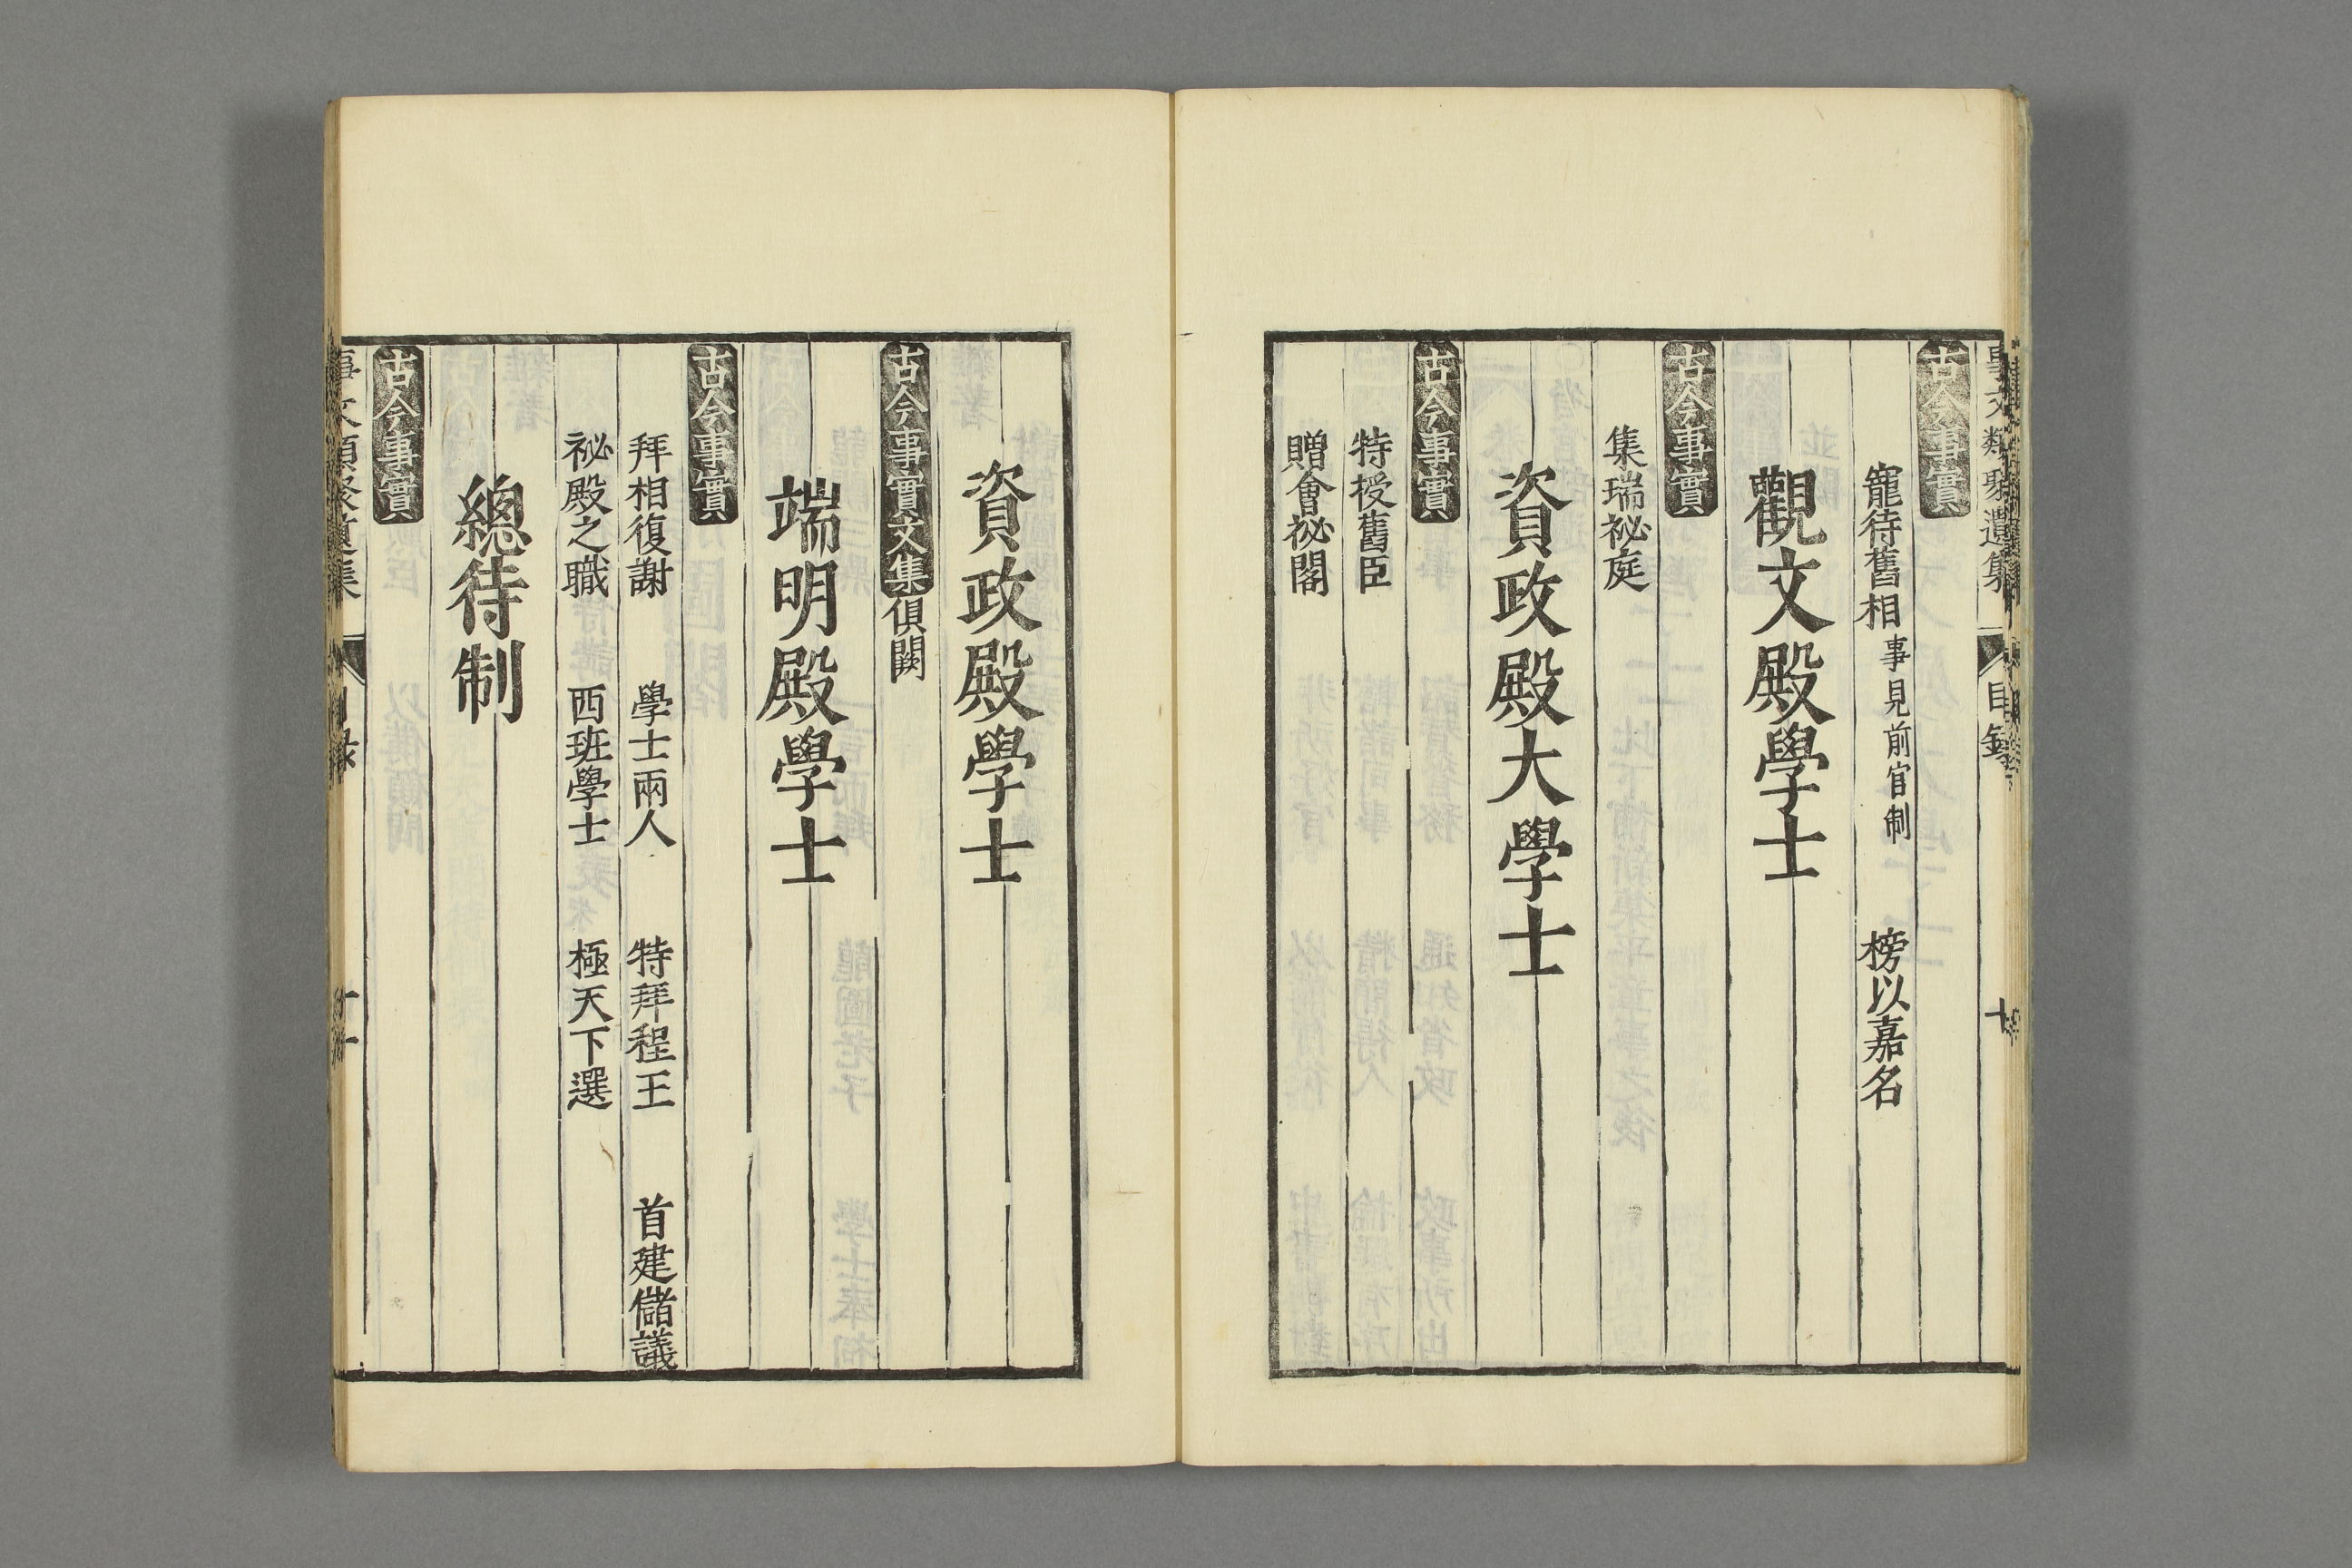 事文類聚遺集 目錄 十
古今事實
寵待舊相 事見前官制 榜以嘉名
觀文殿學士
古今事實
集瑞祕庭
資政殿大學士
古今事實
特授舊臣
贈會祕閣
資政殿學士
古今事實文集俱闕
端明殿學士
古今事實
拜相復謝 學士兩人 特拜程王 首建儲議
祕殿之職 西班學士 極天下選
總待制
古今事實
事文類聚遺集 目録 十一